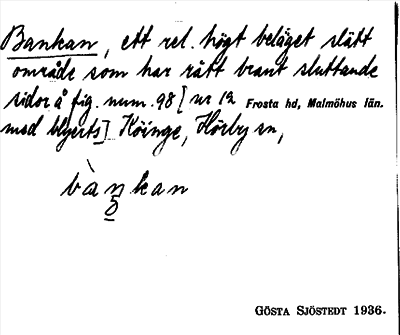 Bankan, ett rel. högt beläget slätt
område som har rått brant sluttande
sidor å fig. num. 98 [nr 12 Frosta hd, Malmöhus län.
med blyerts] Köinge, Hörby sn,
bàŋkan
GÖSTA SJÖSTEDT 1936.